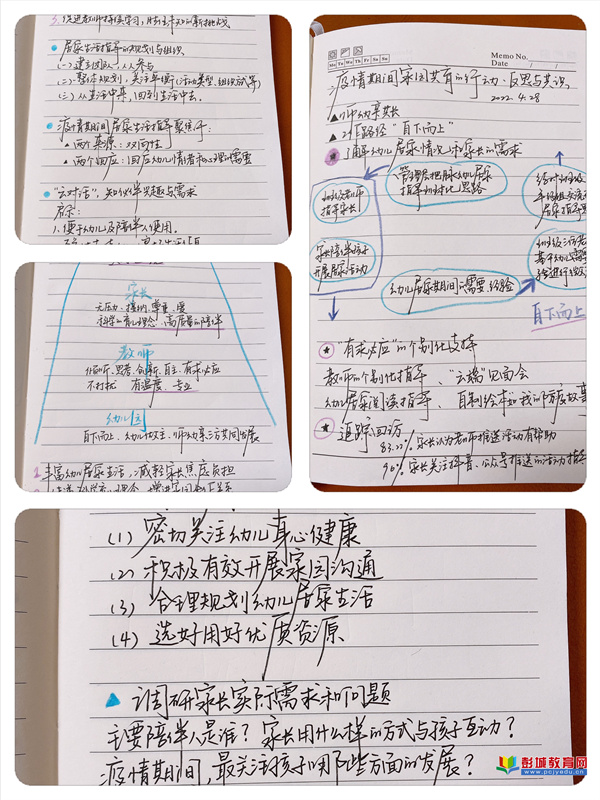 3.促进教师持续学习,胜任未知的新挑战
居家生活指导的规划与组织
(一)建立团队,人人参与
(二)整体规划,关注平衡(活动类型、组织形式等)
(三)从生活中来,回到生活中去。
疫情期间居家生活指导聚焦于:
两个来源:双向性
两个回应:回应幼儿情绪和心理的需要
"云对话",知伙伴兴趣与需求
1.便于幼儿及陪伴人使用。
家长
无压力、接纳、尊重、爱
科学的育儿理念、高质量的陪伴
教师
倾听、思考、创新、自主、有求必应
不打扰 有温度、专业
幼儿园
自下而上、幼儿为主、师幼家三方共同发展
1.丰富幼儿居家生活,减轻家长焦虑负担
Memo No.
Mo Tu We Th Fr Sa Su
Date
疫情期间家园共育的行动·反思与共识
2022.4.28
师幼家长
路径"自下而上"
了解幼儿居家情况和家长的需求
管理层把脉幼儿居家
指导初步优化思路
指导家长
家长陪伴孩子
开展居家活动
幼儿居家期间需要、经验
居家指导
自下而上
"有求必应"的个别化支持
教师的个别化指导、"云端"见面会
幼儿居家阅读指导、自制绘本《我的防疫故事
追踪、回访
83.22%家长认为老师推送活动有帮助
90%家长关注抖音、公众号推送的活动指
(1) 密切关注幼儿身心健康
(2) 积极有效开展家园沟通
(3) 合理规划幼儿居家生活
(4) 选好用好优质资源
调研家长实际需求和问题
主要陪伴人是谁?家长用什么样的方式与孩子互动?
疫情期间,最关注孩子哪些方面的发展?
彭城教育网
www.pcjyedu.cn